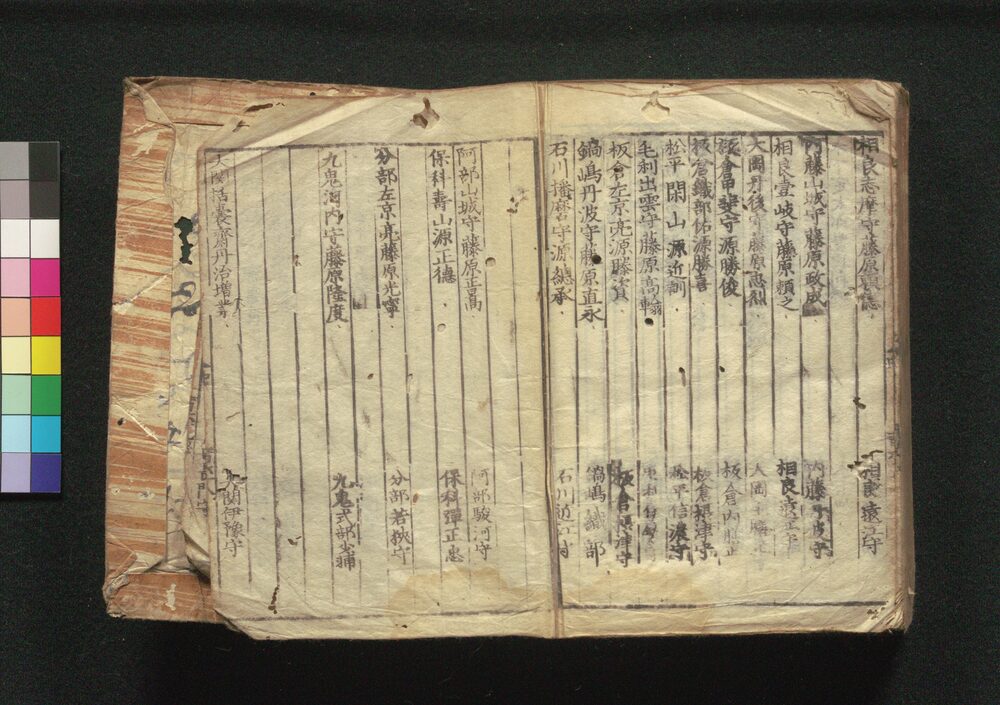 相良志摩守藤原 相良遠江守
内藤山城守藤原政成 内藤
相良壹岐守藤原頼之 相良
大岡丹後守藤原忠烈 大岡
板倉甲斐守源勝俊 板倉内膳正
板倉鐵部佑源勝喜 板倉摂津守
松平閑山源近訓 松平信濃守
毛利出雲守藤原高翰 毛利
板倉左京亮源勝資 板倉摂津守
鍋嶋丹波守藤原直永 鍋嶋織部
石川播磨守源總承 石川近
阿部山城守藤原正蔿 阿部駿河守
保科壽山源正徳 保科彈正忠
分部左京亮藤原光寧 分部若狭守
九鬼河内守藤原隆度 九鬼式部少輔
大関括嚢齋丹治増業 大関伊豫守